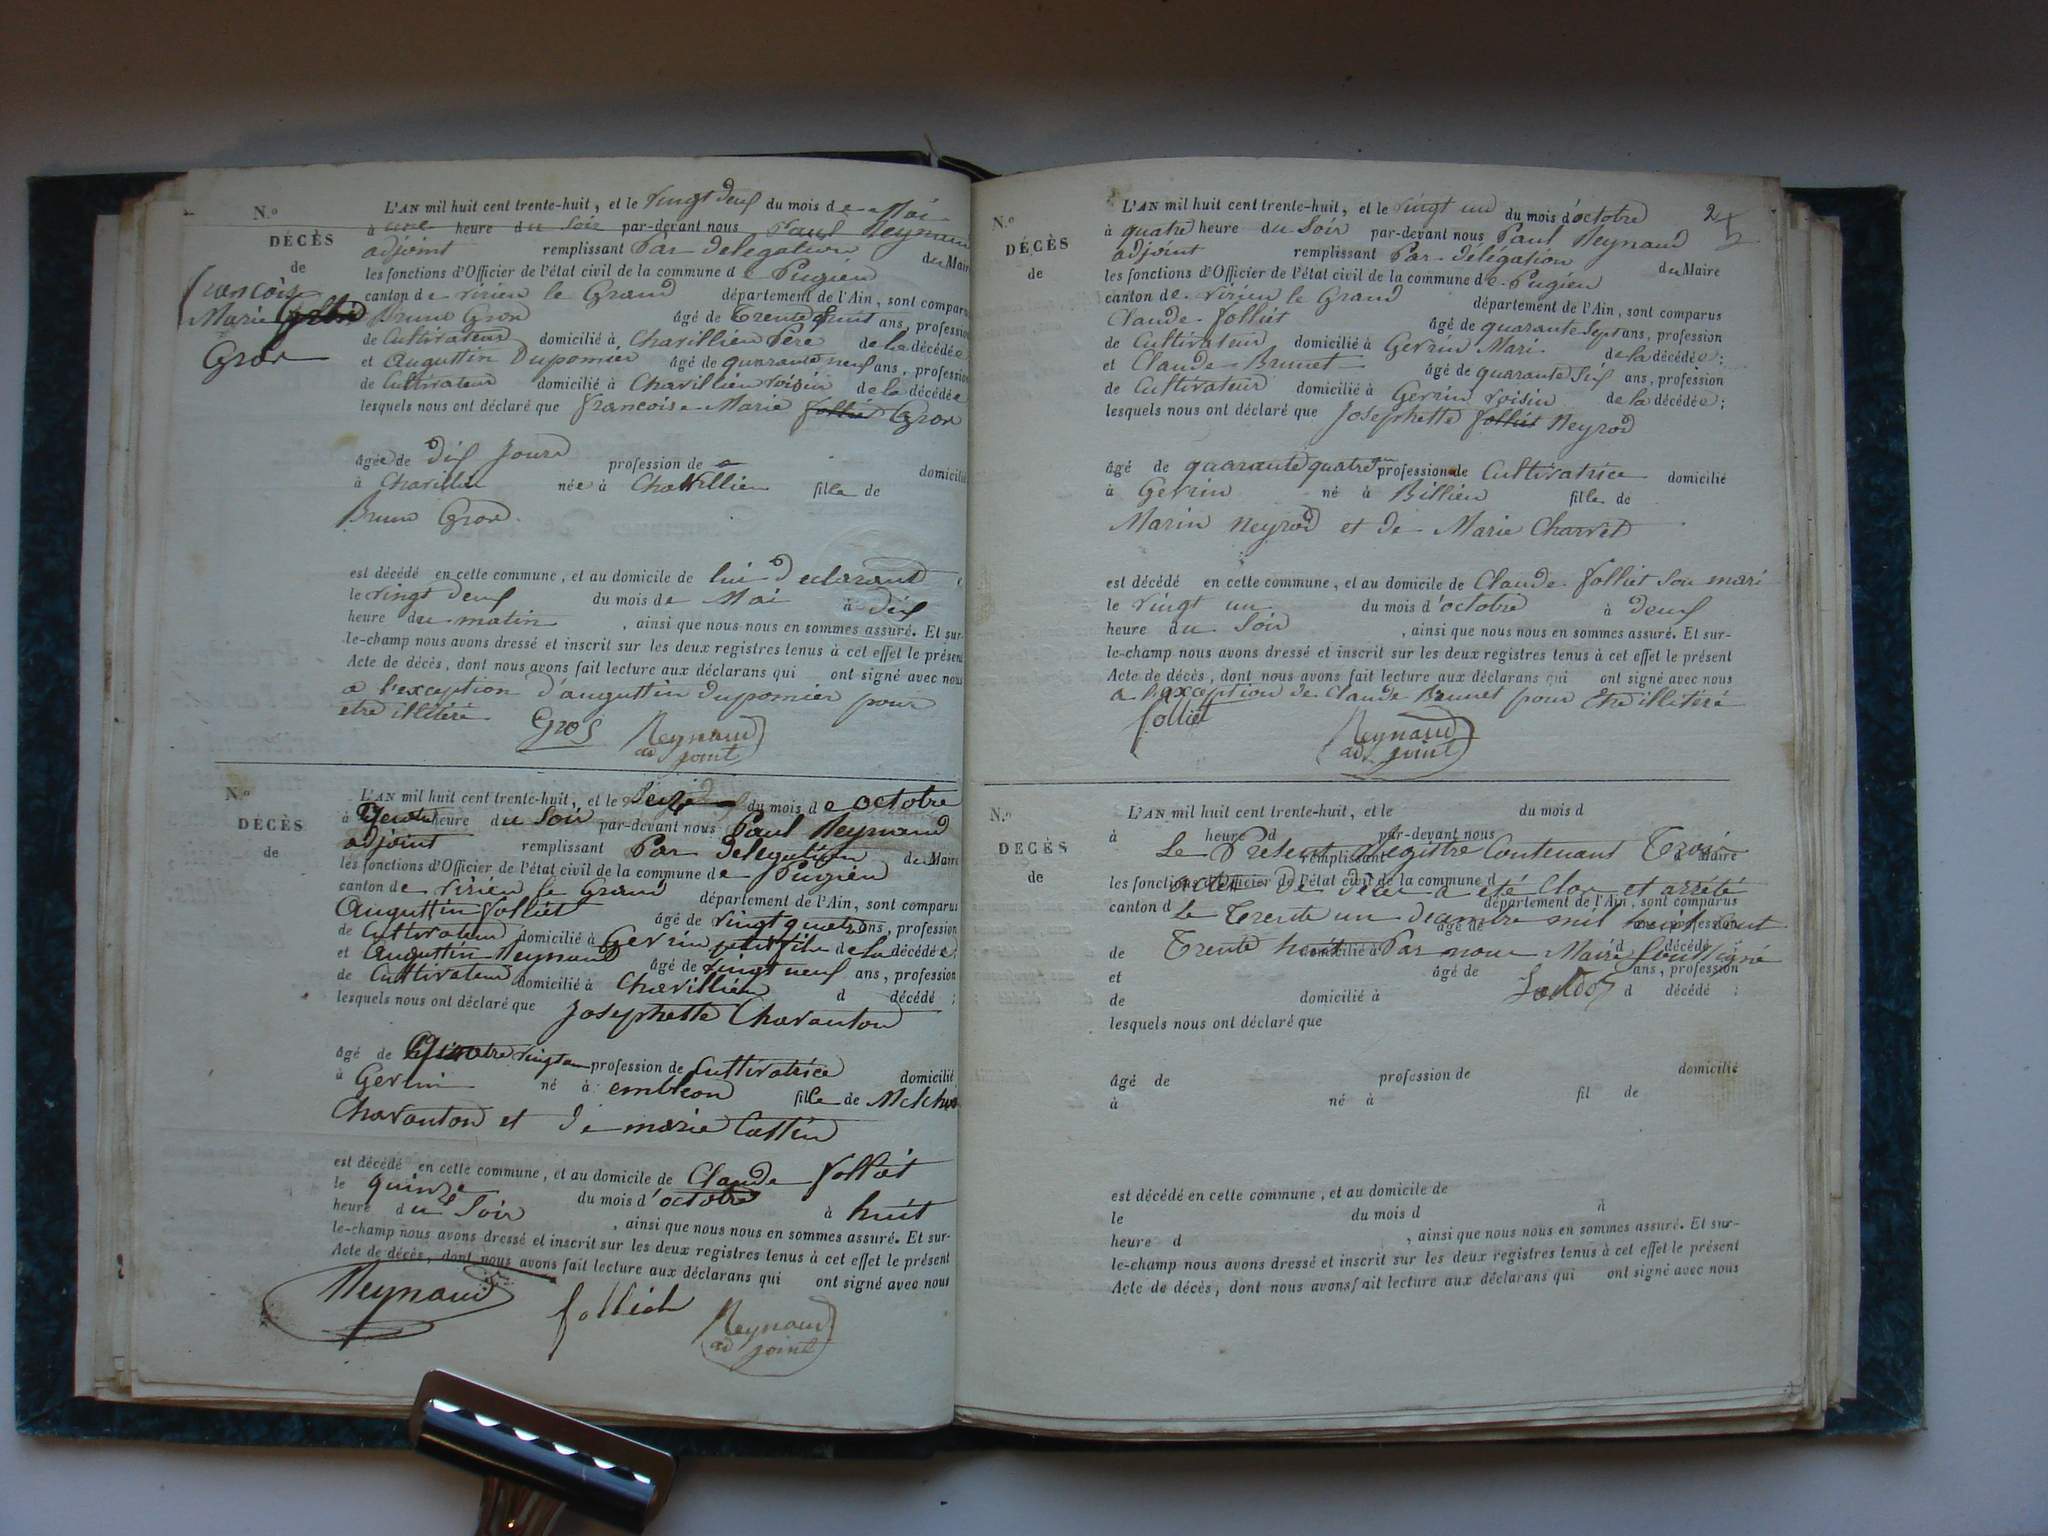 N.o
DÉCÈS
de
françoise
Marie
Gros
L'AN mil huit cent trente-huit, et le vingt deux du mois de Mai
à une heure du Soir par-devant nous Paul Reynaud
adjoint remplissant Par delegation du Maire
les fonctions d'Officier de l'état civil de la commune de Pugieu
canton de virieu le Grand département de l'Ain, sont comparus
Bruno Gros âgé de Trente huit ans, profession
de Cultivateur domicilié à Chavillieu Père de la décédée
et Auguttin Dupomier âgé de quarante neuf ans, profession
de Cultivateur domicilié à Chavillieu voisin de la décédée
lesquels nous ont déclaré que françoise Marie folliet Gros
âgée de dix Jours profession de domicilié
à Chavilieu née à Chavillieu fille de
Bruno Gros.
est décédé en cette commune, et au domicile de lui Declarant
le vingt deux du mois de Mai à dix
heure du matin , ainsi que nous nous en sommes assuré. Et sur-
le-champ nous avons dressé et inscrit sur les deux registres tenus à cet effet le présent
Acte de décès, dont nous avons fait lecture aux déclarans qui ont signé avec nous
a l'exception d'auguttin dupomier pour
etre illitéré
Gros Reynaud
ad joint
N.o
DÉCÈS
de
L'AN mil huit cent trente-huit, et le Seize du mois d e octobre
à heure du Soir par-devant nous Paul Reynaud
adjoint remplissant Par delegation du Maire
les fonctions d'Officier de l'état civil de la commune de Pugieu
canton de virieu le Grand département de l'Ain, sont comparus
Auguttin folliet âgé de vingt quatre ans, profession
de Cultivateur domicilié à Gevrin petit fils de la décédée;
et Auguttin Reynaud âgé de vingt neuf ans, profession
de Cultivateur domicilié à Chavillieu d décédé ;
lesquels nous ont déclaré que Josephette Charanton
âgé de Quatre vingt profession de Cultivatrice domicilié
à Gevrin né à embleon fille de Melchior
Charanton et de marie Cattin
est décédé en cette commune, et au domicile de Claude folliet
le quinze du mois d'octobre à huit
heure du Soir , ainsi que nous nous en sommes assuré. Et sur-
le-champ nous avons dressé et inscrit sur les deux registres tenus à cet effet le présent
Acte de décès, dont nous avons fait lecture aux déclarans qui ont signé avec nous
Reynaud folliet Reynaud
ad joint
N.o
DÉCÈS
de
L'AN mil huit cent trente-huit, et le vingt un du mois d'octobre
à quatre heure du Soir par-devant nous Paul Reynaud
adjoint remplissant Par délégation du Maire
les fonctions d'Officier de l'état civil de la commune de Pugieu
canton de virieu le Grand département de l'Ain, sont comparus
Claude folliet âgé de quarante Sept ans, profession
de Cultivateur domicilié à Gevrin Mari de la décédée;
et Claude Brunet âgé de quarante Six ans, profession
de Cultivateur domicilié à Gevrin voisin de la décédée;
lesquels nous ont déclaré que Josephette folliet Neyrod
âgé de quarante quatre profession de Cultivatrice domicilié
à Gevrin né à Billieu fille de
Marin neyrod et de Marie Charvet
est décédé en cette commune, et au domicile de Claude folliet Son mari
le vingt un du mois d'octobre à deux
heure du Soir , ainsi que nous nous en sommes assuré. Et sur-
le-champ nous avons dressé et inscrit sur les deux registres tenus à cet effet le présent
Acte de décès, dont nous avons fait lecture aux déclarans qui ont signé avec nous
a l'exception de Claude Brunet pour Etre illitéré
folliet Reynaud
ad joint
N.o
DÉCÈS
de
L'AN mil huit cent trente-huit, et le du mois d
à heure d par-devant nous
Le Présent Registre Contenant Trois
remplissant d Maire
les fonctions d'Officier de l'état civil de la commune d
actes de décès a été Clos et arrété
canton d département de l'Ain, sont comparus
Le Trente un decembre mil huit cent
âgé de profession
de domicilié à d décédé ;
Trente huit Par nous Maire Soussigné
et âgé de ans, profession
de domicilié à d décédé ;
lesquels nous ont déclaré que
âgé de profession de domicilié
à né à fil de
est décédé en cette commune, et au domicile de
le du mois d à
heure d , ainsi que nous nous en sommes assuré. Et sur-
le-champ nous avons dressé et inscrit sur les deux registres tenus à cet effet le présent
Acte de décès, dont nous avons fait lecture aux déclarans qui ont signé avec nous